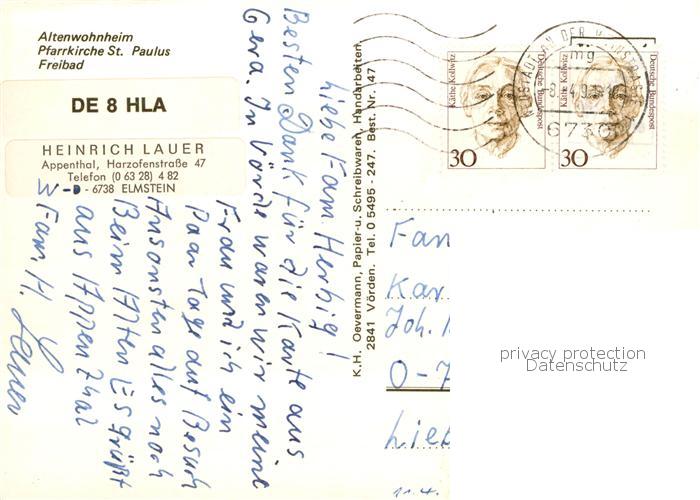 Altenwohnheim
Pfarrkirche St. Paulus
Freibad
DE 8 HLA
HEINRICH LAUER
Appenthal, Harzofenstraße 47
Telefon (0 63 28) 4 82
W-D - 6738 ELMSTEIN
Liebe Fam. Herbig!
Besten Dank für die Karte aus
Gera. In Vörde waren wir meine
Frau und ich ein
paar Tage auf Besuch
Ansonsten alles noch
Beim Alten Es grüßt
aus Appenthal
Fam. H. Lauer
K.H. Oevermann, Papier-u. Schreibwaren, Handarbeiten,
2841 Vörden. Tel. 0 5495 - 247. Best. Nr. 147
Käthe Kollwitz
Deutsche Bundespost
30
Käthe Kollwitz
Deutsche Bundespost
30
mg
6730
Fam
Kar
Joh.
O-7
Lieb
11.4.
privacy protection
Datenschutz